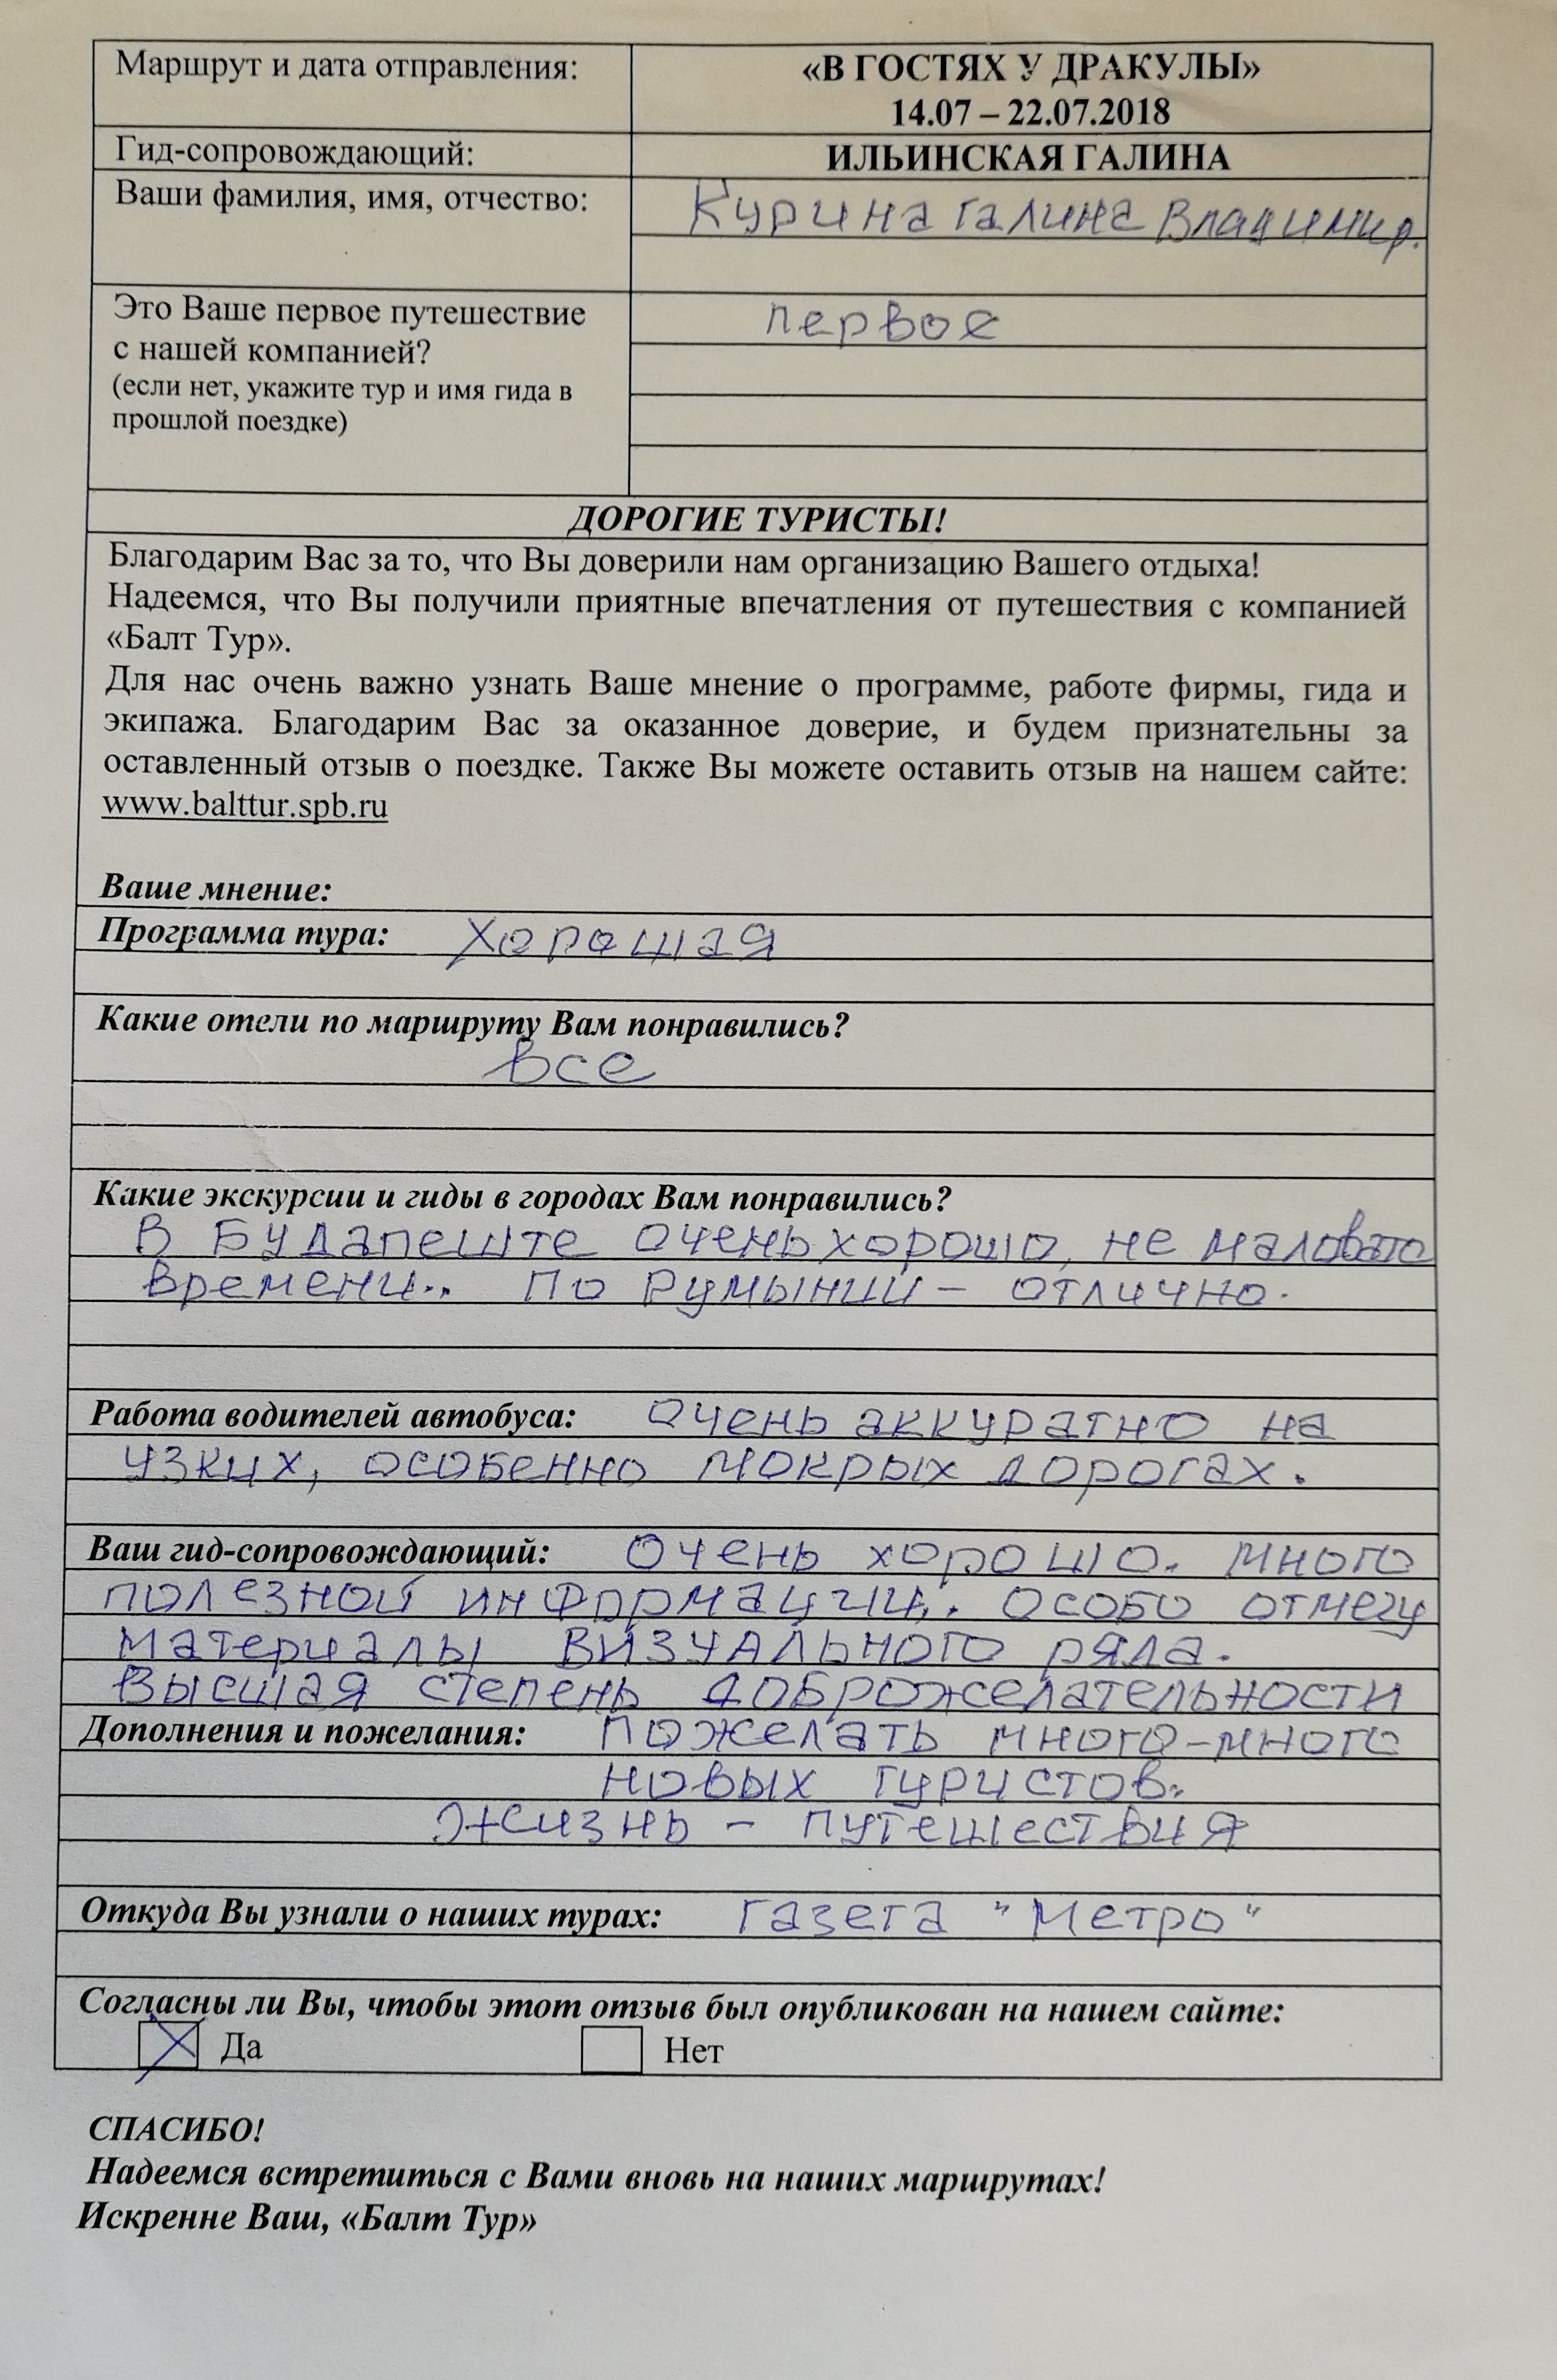 Маршрут и дата отправления:
«В ГОСТЯХ У ДРАКУЛЫ»
14.07 – 22.07.2018
Гид-сопровождающий:
ИЛЬИНСКАЯ ГАЛИНА
Ваши фамилия, имя, отчество:
Курина Галина Владимир.
Это Ваше первое путешествие
с нашей компанией?
(если нет, укажите тур и имя гида в
прошлой поездке)
первое
ДОРОГИЕ ТУРИСТЫ!
Благодарим Вас за то, что Вы доверили нам организацию Вашего отдыха!
Надеемся, что Вы получили приятные впечатления от путешествия с компанией
«Балт Тур».
Для нас очень важно узнать Ваше мнение о программе, работе фирмы, гида и
экипажа. Благодарим Вас за оказанное доверие, и будем признательны за
оставленный отзыв о поездке. Также Вы можете оставить отзыв на нашем сайте:
www.balttur.spb.ru
Ваше мнение:
Программа тура: Хорошая
Какие отели по маршруту Вам понравились?
все
Какие экскурсии и гиды в городах Вам понравились?
В Будапеште очень хорошо, не маловато
времени.. По Румынии – отлично.
Работа водителей автобуса: Очень аккуратно на
узких, особенно мокрых дорогах.
Ваш гид-сопровождающий: Очень хорошо. Много
полезной информации. Особо отмечу
материалы визуального ряда.
Высшая степень доброжелательности
Дополнения и пожелания: Пожелать много-много
новых туристов.
Жизнь – путешествия
Откуда Вы узнали о наших турах: газета "Метро"
Согласны ли Вы, чтобы этот отзыв был опубликован на нашем сайте:
Да Нет
СПАСИБО!
Надеемся встретиться с Вами вновь на наших маршрутах!
Искренне Ваш, «Балт Тур»